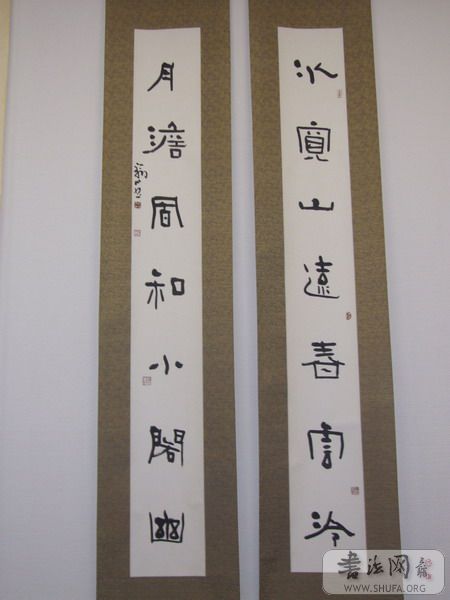 水寬山遠春雲泠
月澹風和小閣幽
書法网
WWW.SHUFA.ORG